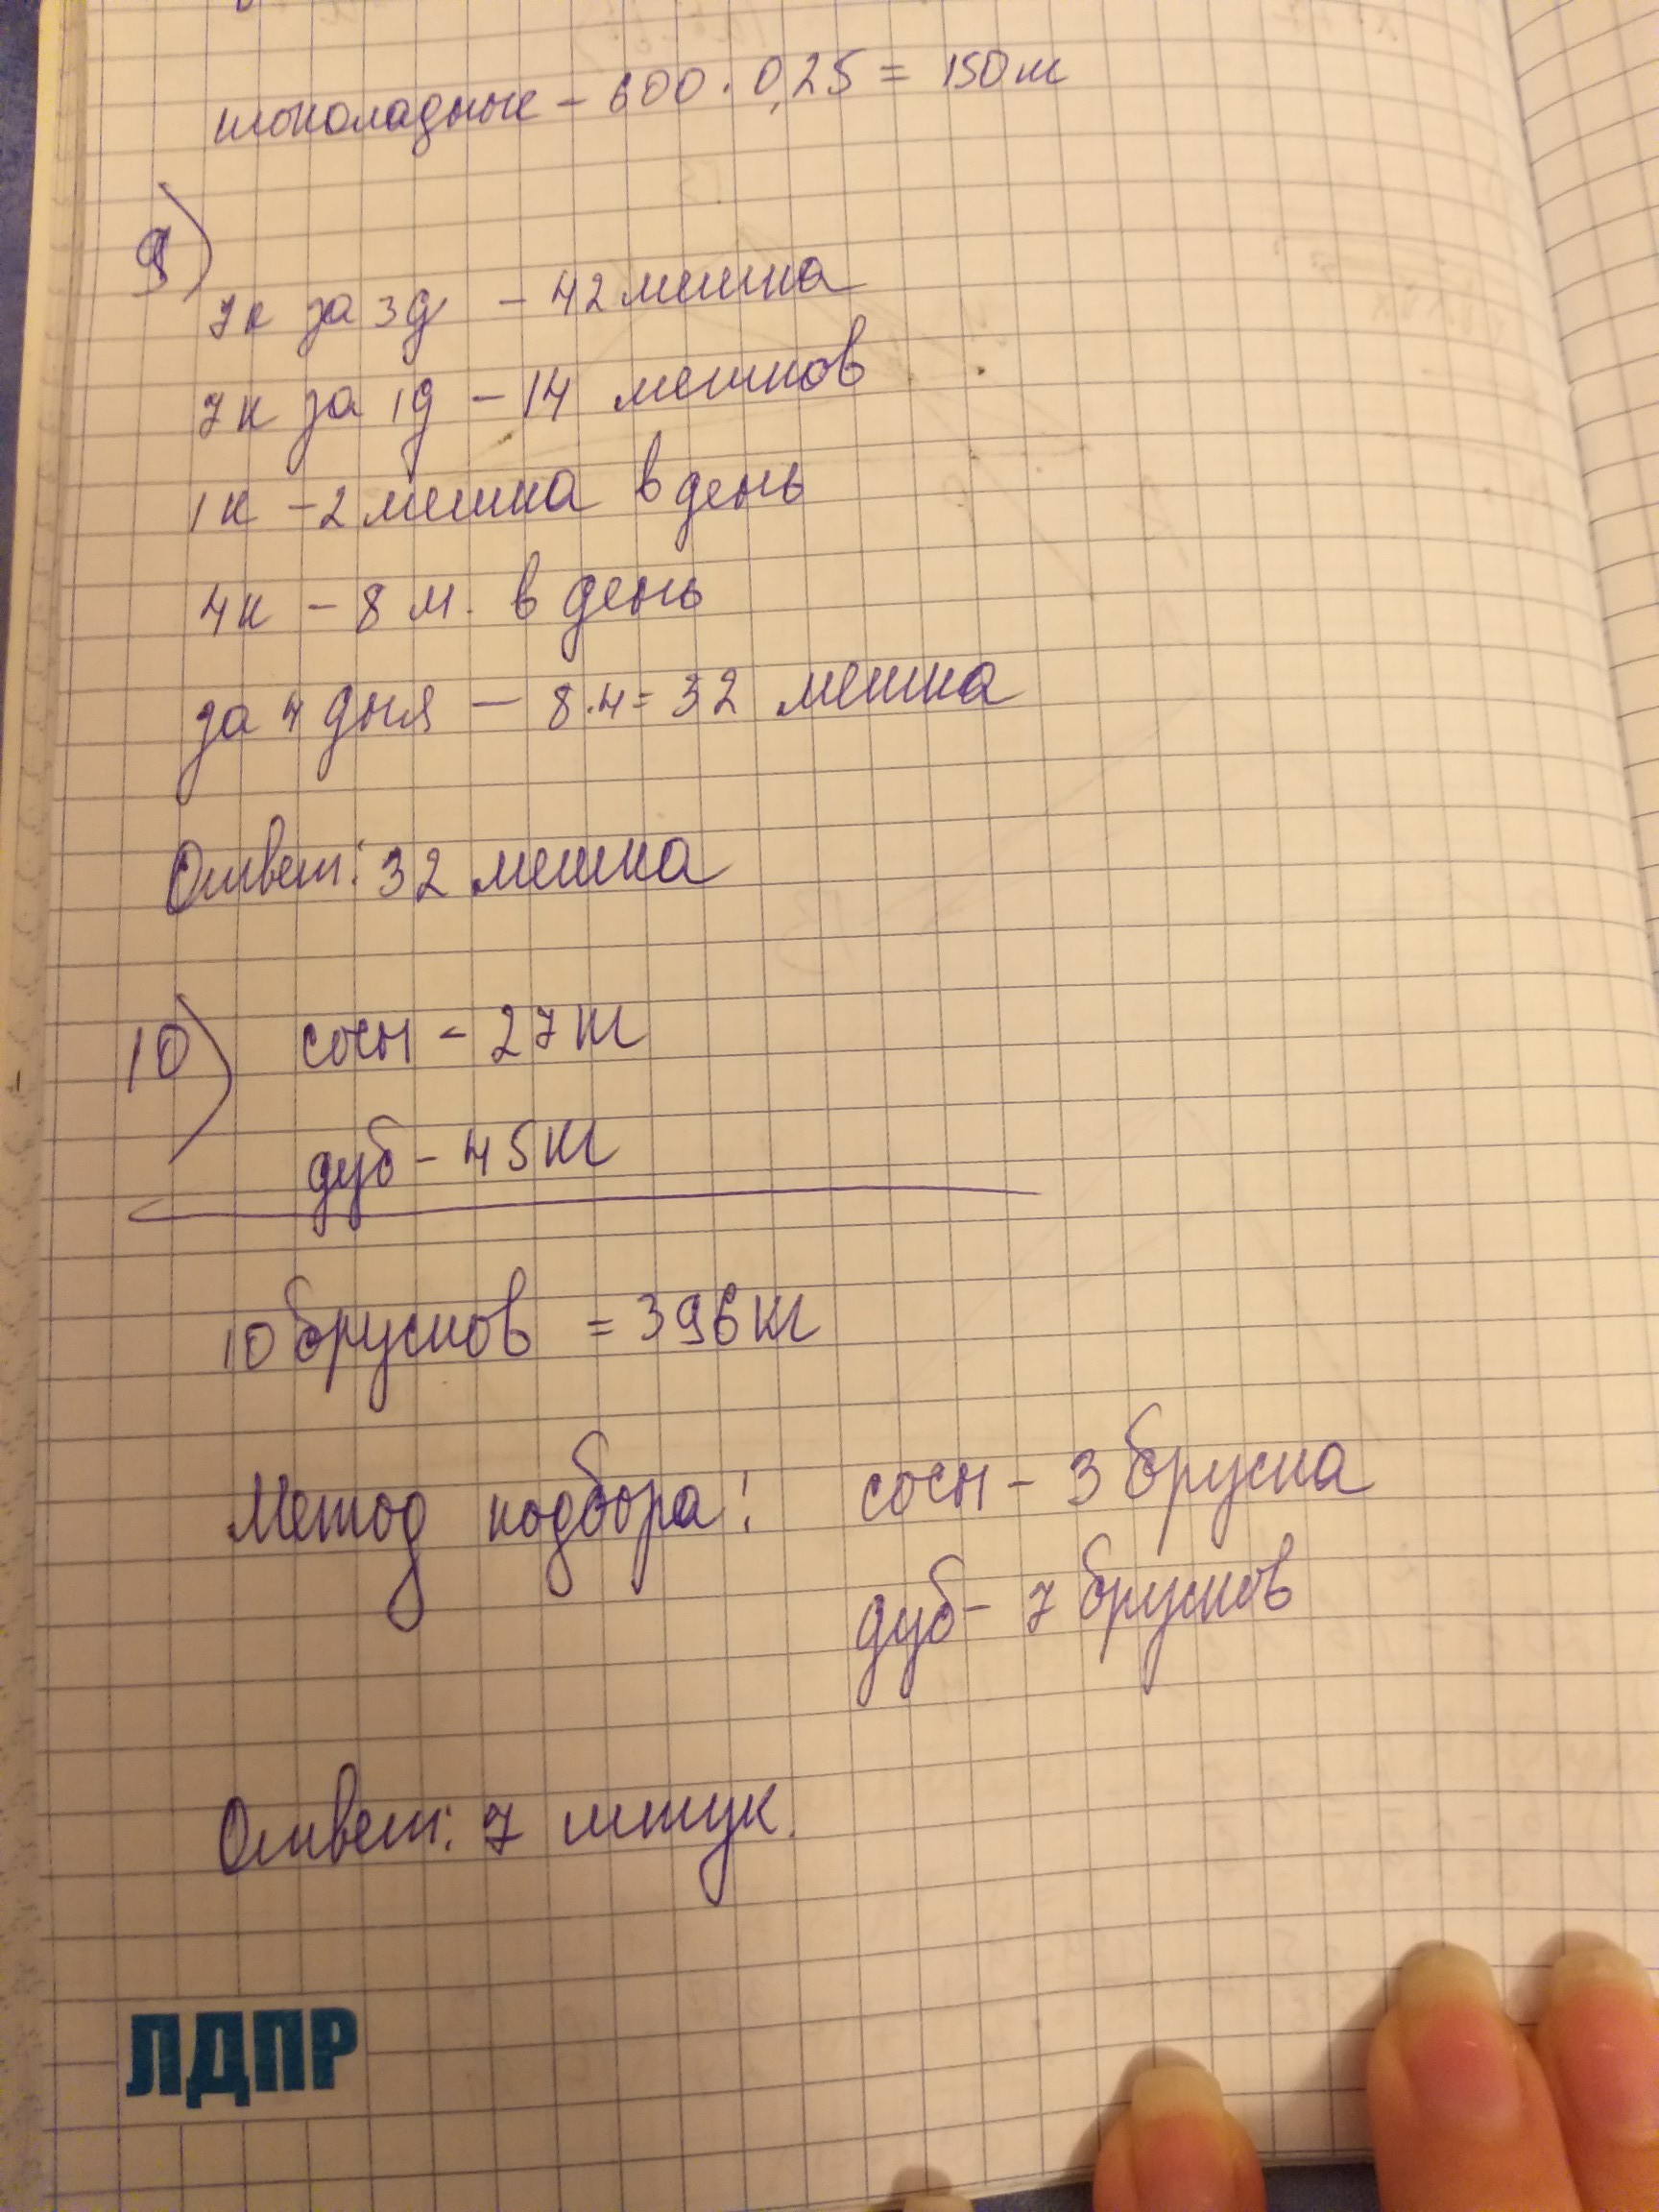 шоколадные – 600 · 0,25 = 150 ш
9)
7к за 3д – 42 мешка
7к за 1д – 14 мешков
1к – 2 мешка в день
4к – 8 м. в день
за 4 дня – 8·4 = 32 мешка
Ответ: 32 мешка
10) сосн – 27 кг
дуб – 45 кг
10 брусков = 396 кг
Метод подбора: сосн – 3 бруска
дуб – 7 брусков
Ответ: 7 штук.
ЛДПР